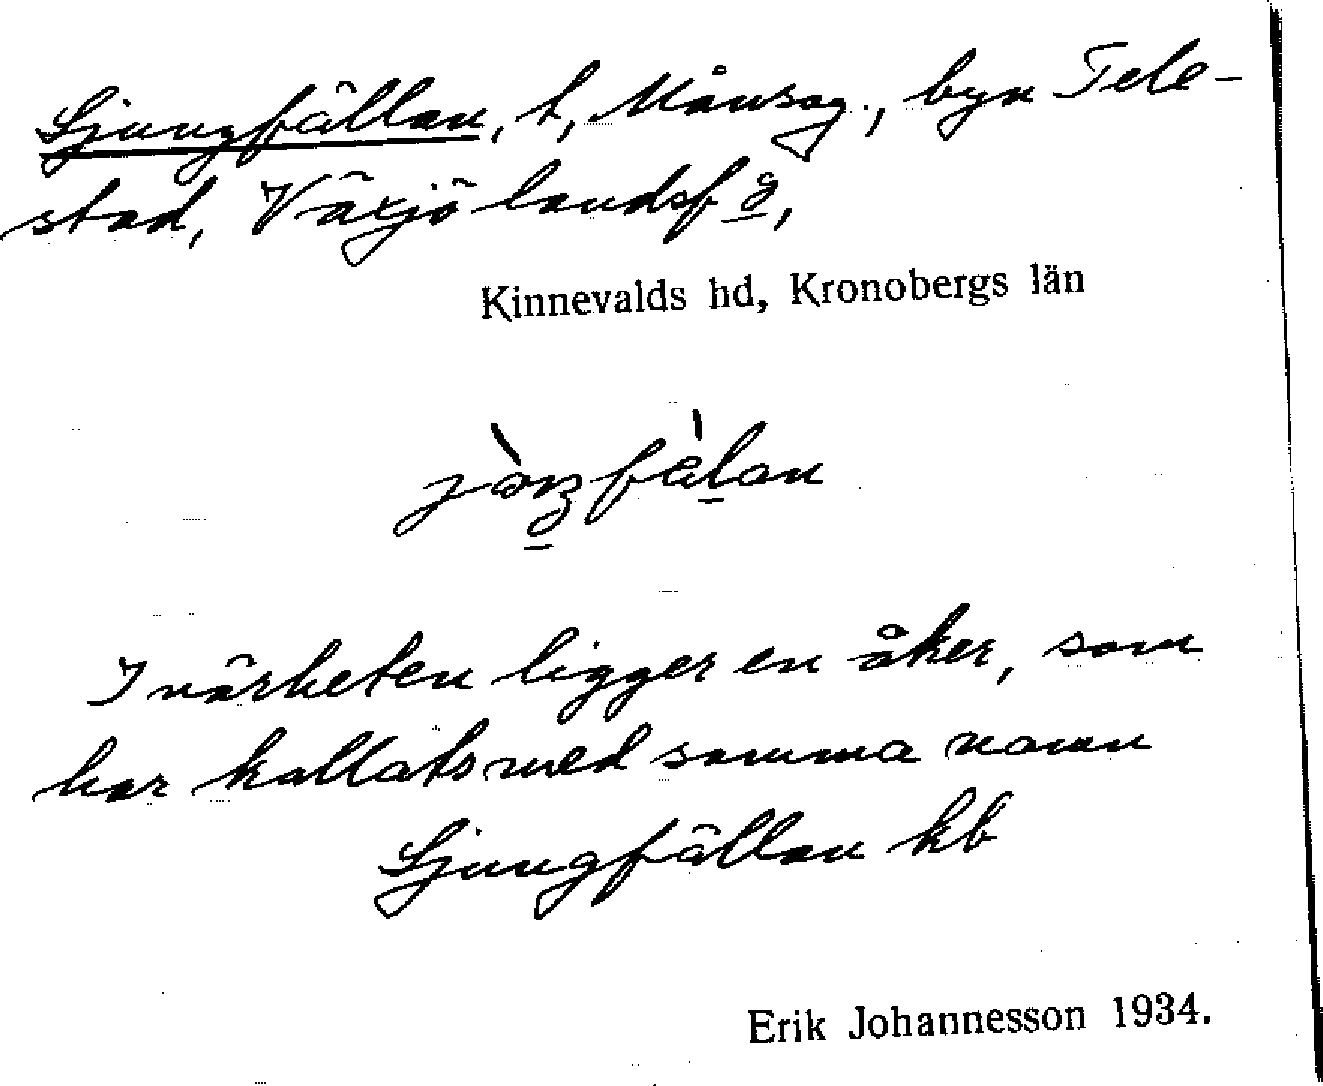 Ljungfällan, t, Månsag., byn Tele-
stad, Växjö landsfg,
Kinnevalds hd, Kronobergs län
I närheten ligger en åker, som
har kallats med samma namn
Ljungfällan kb
Erik Johannesson 1934.